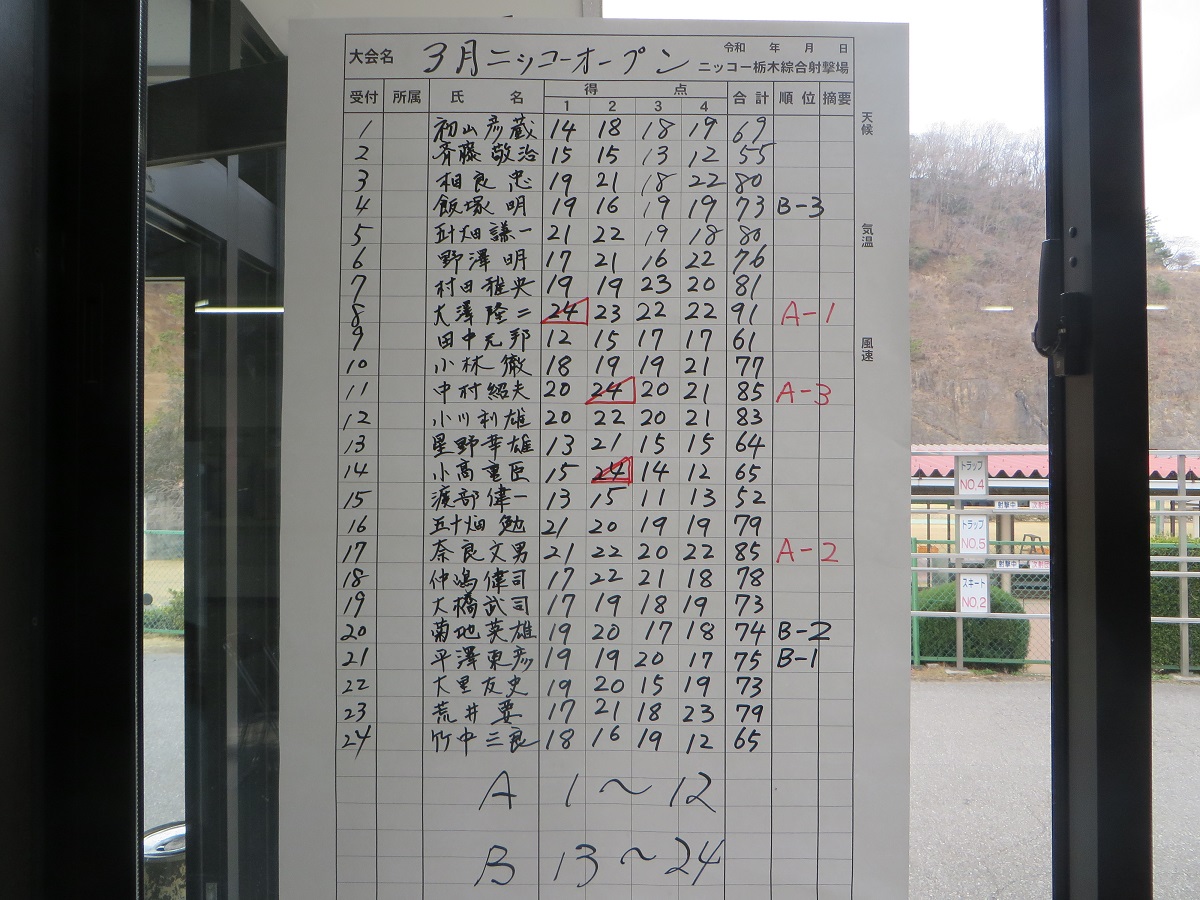 大会名 3月ニッコーオープン 令和 年 月 日
ニッコー栃木綜合射撃場
受付 所属 氏 名 得 点 合計 順位 摘要
1 2 3 4
1 初山彦蔵 14 18 18 19 69
2 斉藤敬治 15 15 13 12 55
3 相良忠 19 21 18 22 80
4 飯塚明 19 16 19 19 73 B-3
5 五十畑謙一 21 22 19 18 80
6 野澤明 17 21 16 22 76
7 村田雅央 19 19 23 20 81
8 大澤隆二 24 23 22 22 91 A-1
9 田中元邦 12 15 17 17 61
10 小林徹 18 19 19 21 77
11 中村紹夫 20 24 20 21 85 A-3
12 小川利雄 20 22 20 21 83
13 星野幸雄 13 21 15 15 64
14 小高重臣 15 24 14 12 65
15 渡部偉一 13 15 11 13 52
16 五十畑勉 21 20 19 19 79
17 奈良文男 21 22 20 22 85 A-2
18 仲嶋偉司 17 22 21 18 78
19 大橋武司 17 19 18 19 73
20 菊地英雄 19 20 17 18 74 B-2
21 平澤東彦 19 19 20 17 75 B-1
22 大里友史 19 20 15 19 73
23 荒井要 17 21 18 23 79
24 竹中三良 18 16 19 12 65
A 1〜12
B 13〜24
天候
気温
風速
トラップ
NO.4
トラップ
NO.5
射撃中
スキート
NO.2